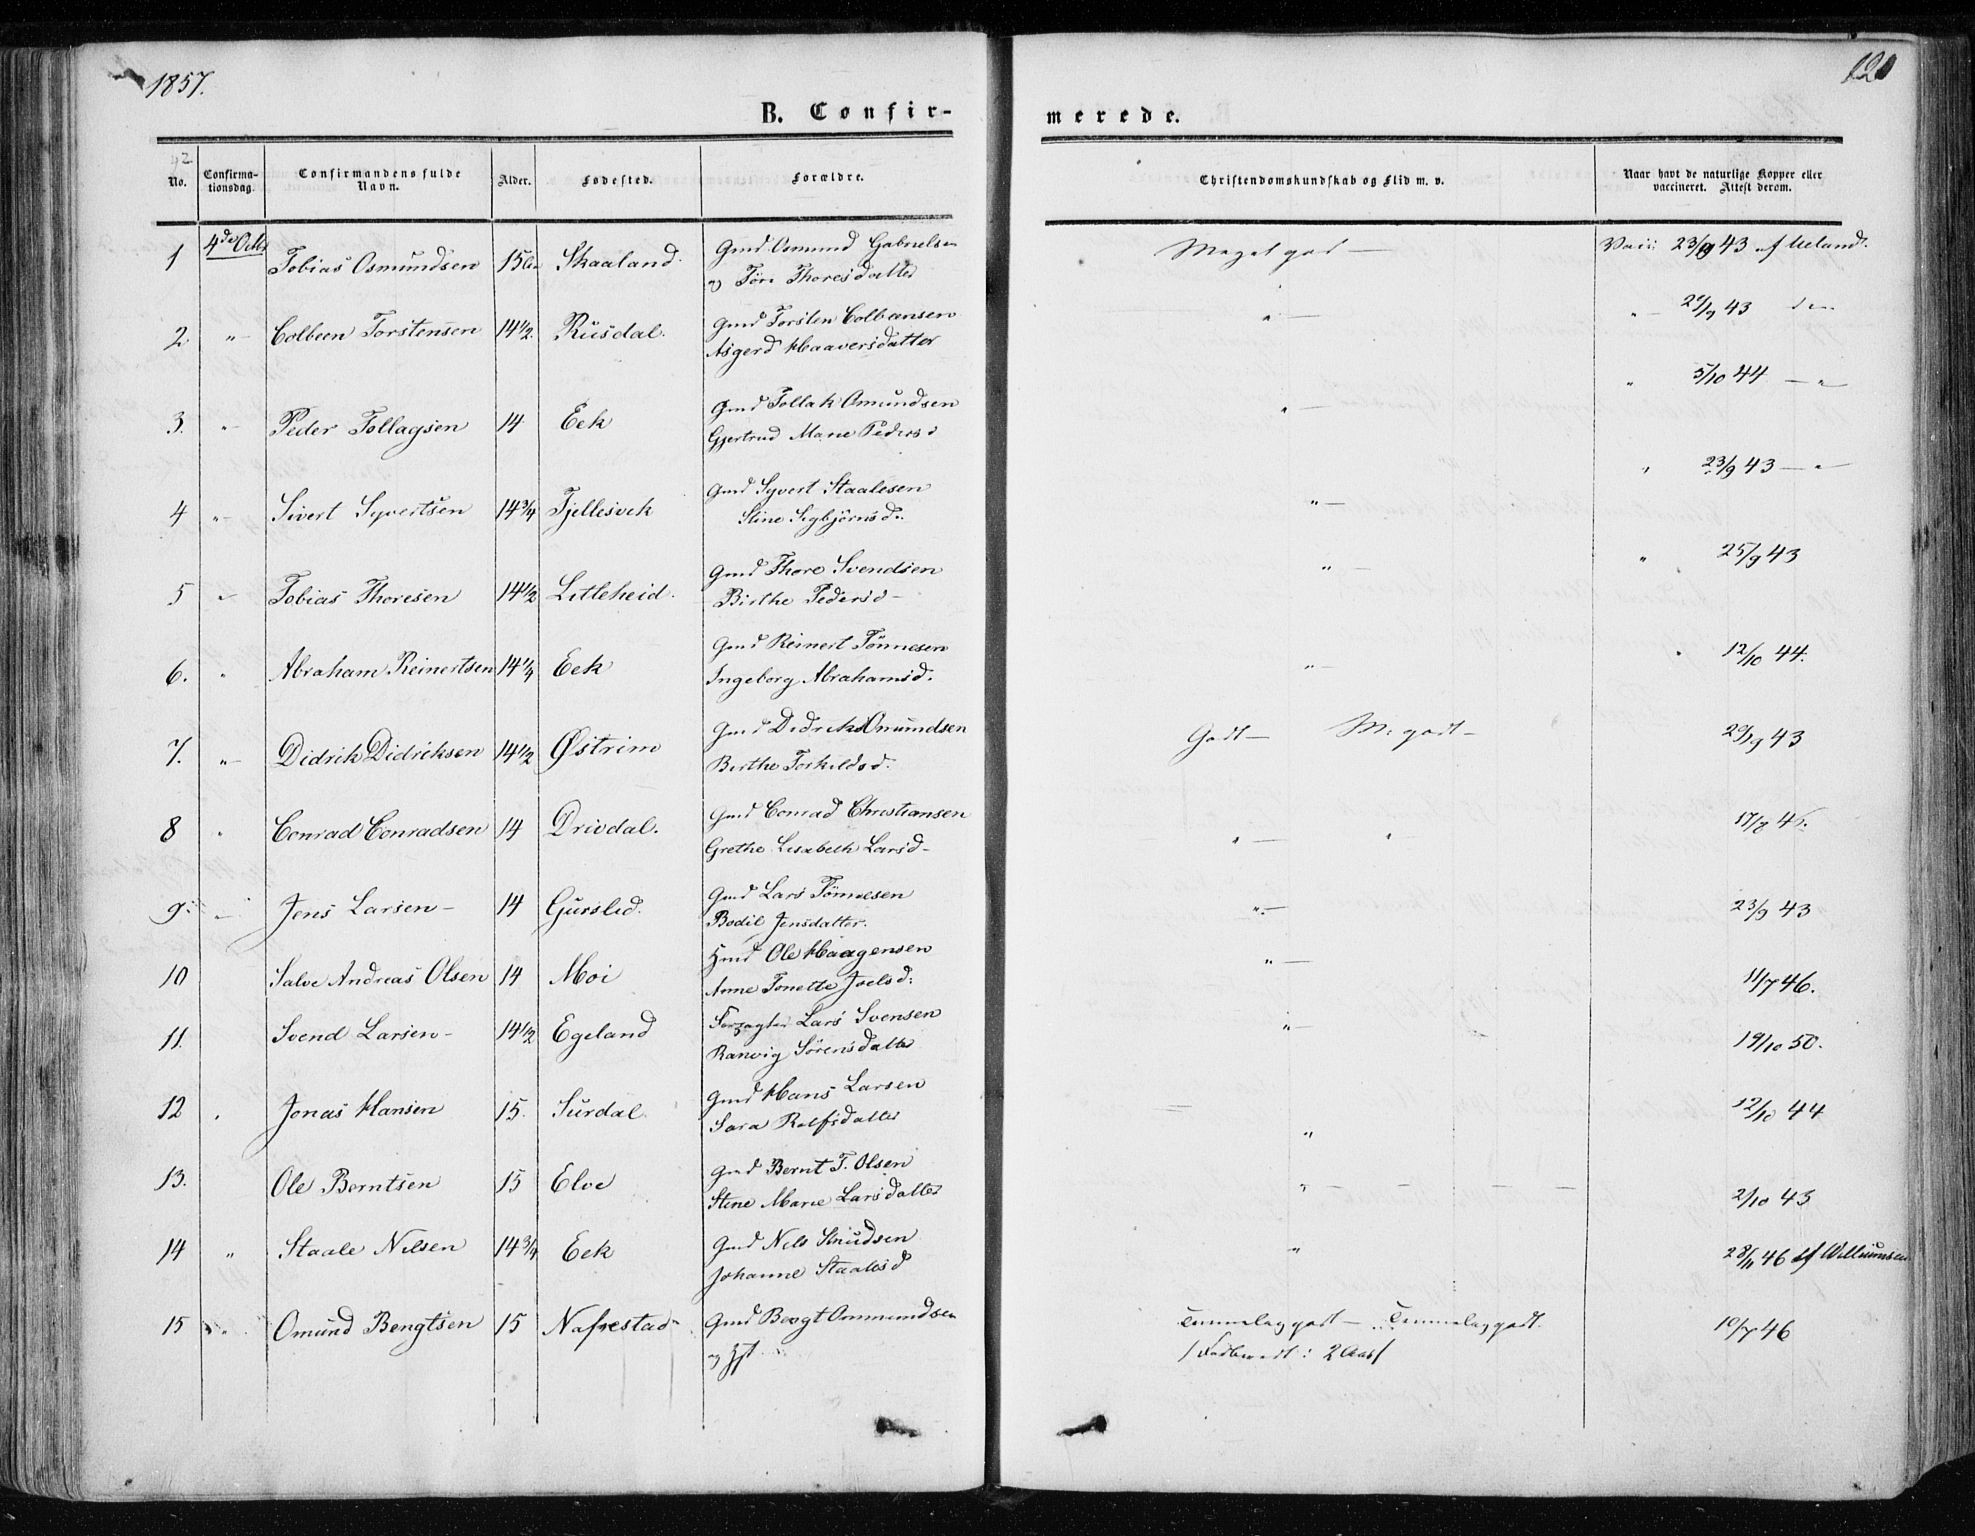 1857.
120
B. Confir-
merede.
42
No.
Confirma-
tionsdag.
Confirmandens fulde
Navn.
Alder.
Fødested.
Forældre.
Christendomskundskab og Flid m. v.
Naar havt de naturlige Kopper eller
vaccineret. Attest derom.
1 4de Octbr Tobias Osmundsen Skaaland. Gmd Osmund Gabrielsen Meget god — 23/9 43 af Ueland.
Thoresdatter
2 " Colbeen Torstensen 14½ Rusdal. Gmd Torsten Colbensen " — " 43
Asgerd Haaversdatter
3. " Peder Tollagsen 14 Eek Gmd Tollak Omundsen " — " 5/10 44 — "
Gjertrud Marie Pedersd
4 " Sivert Syvertsen 14¾ Fjellesvek Gmd Syvert Staalesen " — " 23/9 43 — "
Stine Sigbjørnsd.
5 " Tobias Thoresen 14½ Letleheid. Gmd Thore Svendsen " — " 25/9 43
Birthe Pedersd —
6. " Abraham Reinertsen 14¼ Eek Gmd Reinert Tønnesen " — " 12/10 44.
Ingeborg Abrahamsd.
7. " Didrik Didriksen 14½ Østrim Gmd Didrik Omundsen Godt — M. godt — 29/9 43
Berthe Torkildsd.
8 " Conrad Conradsen 14 Drivdal. Gmd Conrad Christiansen " — "
Grethe Lisabeth Larsd —
9. " Jens Larsen — 14 Gursled. Gmd Lars Tønnesen " — 23/9 43
Bodil Jensdatter.
10 Salve Andreas Olsen 14 Moi Hmd Ole Haagensen " — 11/7 46.
Anne Tonette Joelsd:
11. Svend Larsen — 14½ Egeland Forpagter Lars Svensen " — 19/10 50.
Ranvig Sørensdatter
12 " Jonas Hansen 15. Surdal. Gmd Hans Larsen " 12/10 44
Sara Rolfsdatter
13. Ole Berntsen 15 Elve Gmd Bernt T. Olsen " — — — — 2/10 43
Stene Marie Larsdatter
14 " Staale Nilsen 14¾ Eek Gmd Nels Knudsen " 28/11 46 af Williumsen
Johanne Staalesd
15 " Omund Bengtsen 15 Nafrestad — Gmd Bengt Ommundsen Temmelig godt — Temmelig godt. 10/7 46